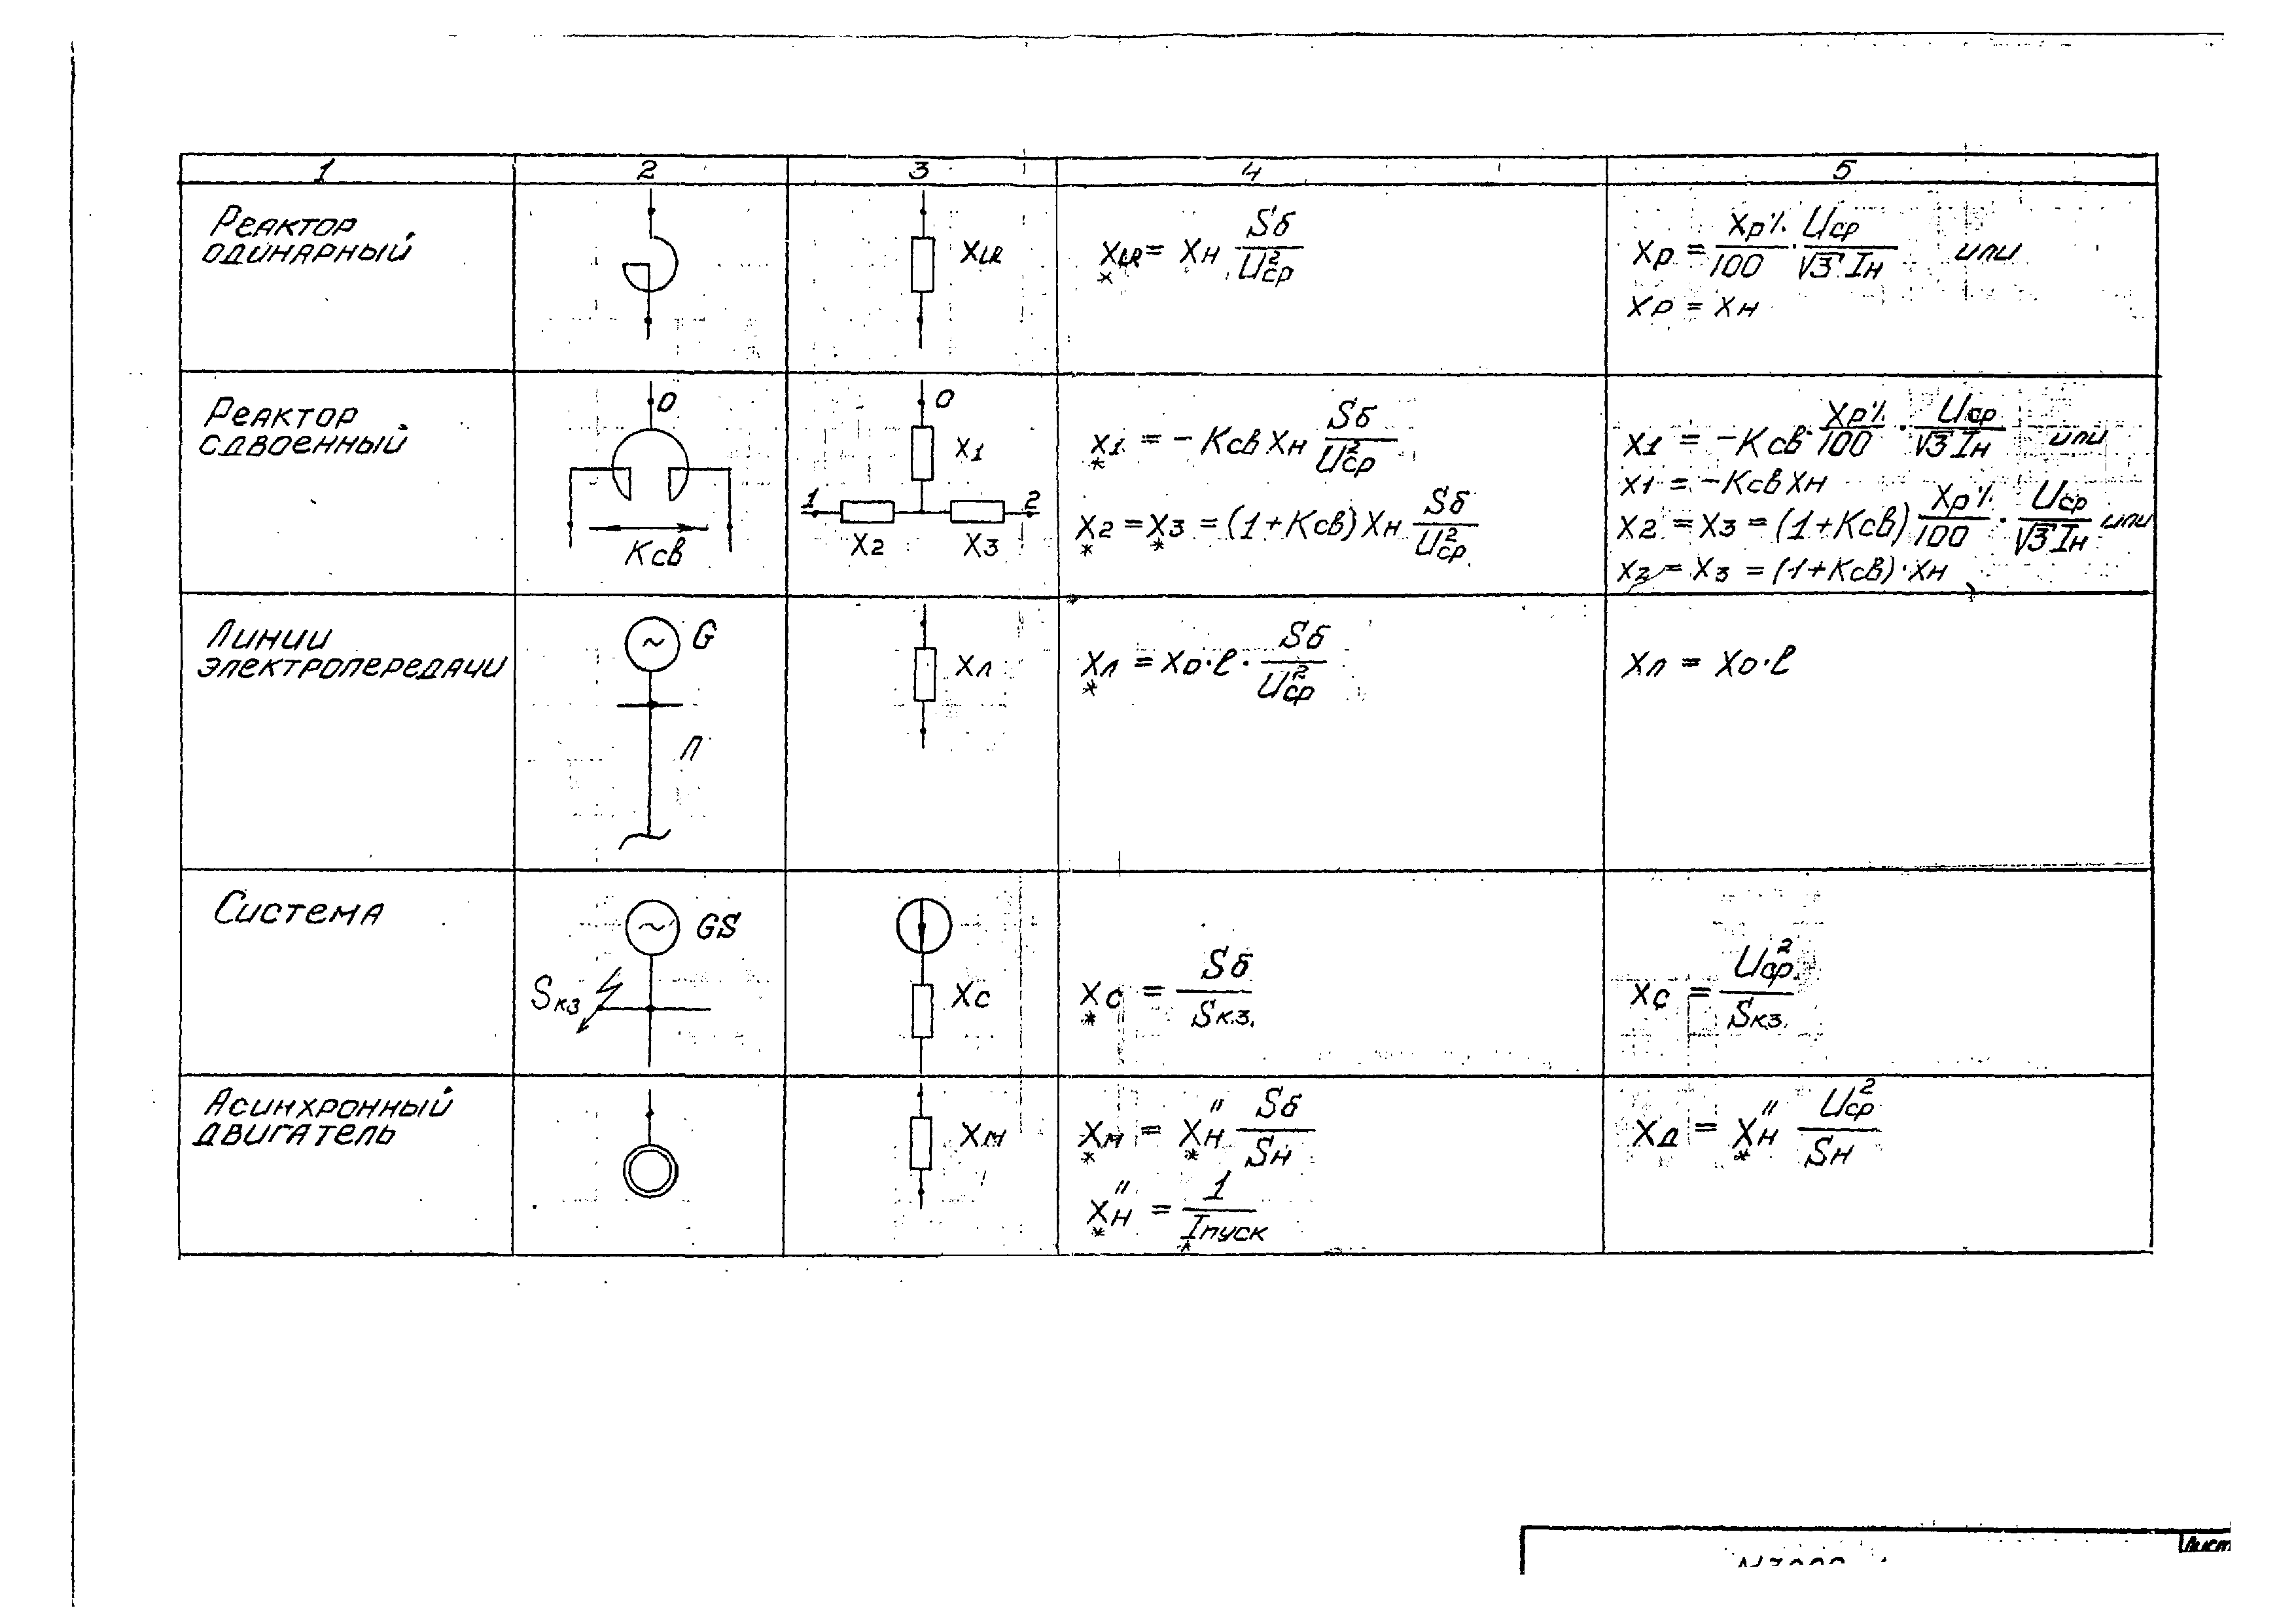 1 2 3 4 5
Реактор
одинарный
XLR
X*LR = Xн Sб / U²ср
Xр = Xр% / 100 · Uср / √3 Iн или
Xр = Xн
Реактор
сдвоенный
0
Ксв
0
X1
1
2
X2 X3
X*1 = - Ксв Xн Sб / U²ср
X*2 = X*3 = (1 + Ксв) Xн Sб / U²ср
X1 = -Ксв · Xр% / 100 · Uср / √3 Iн или
X1 = -Ксв Xн
X2 = X3 = (1 + Ксв) Xр% / 100 · Uср / √3 Iн или
X2 = X3 = (1 + Ксв) · Xн
Линии
электропередачи
G
Л
Xл
X*л = Xо · l · Sб / U²ср
Xл = Xо · l
Система
~ GS
Sкз
Xс
X*с = Sб / Sк.з.
Xс = U²ср. / Sкз.
Асинхронный
двигатель
Xм
X*м = X*″н Sб / Sн
X*″н = 1 / I*пуск
Xд = X*″н U²ср / Sн
Лист